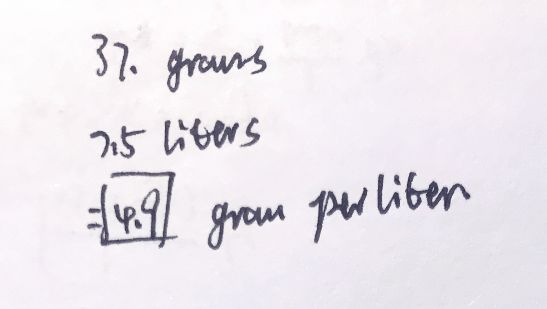 37. grams
7.5 liters
= 4.9 gram per liter